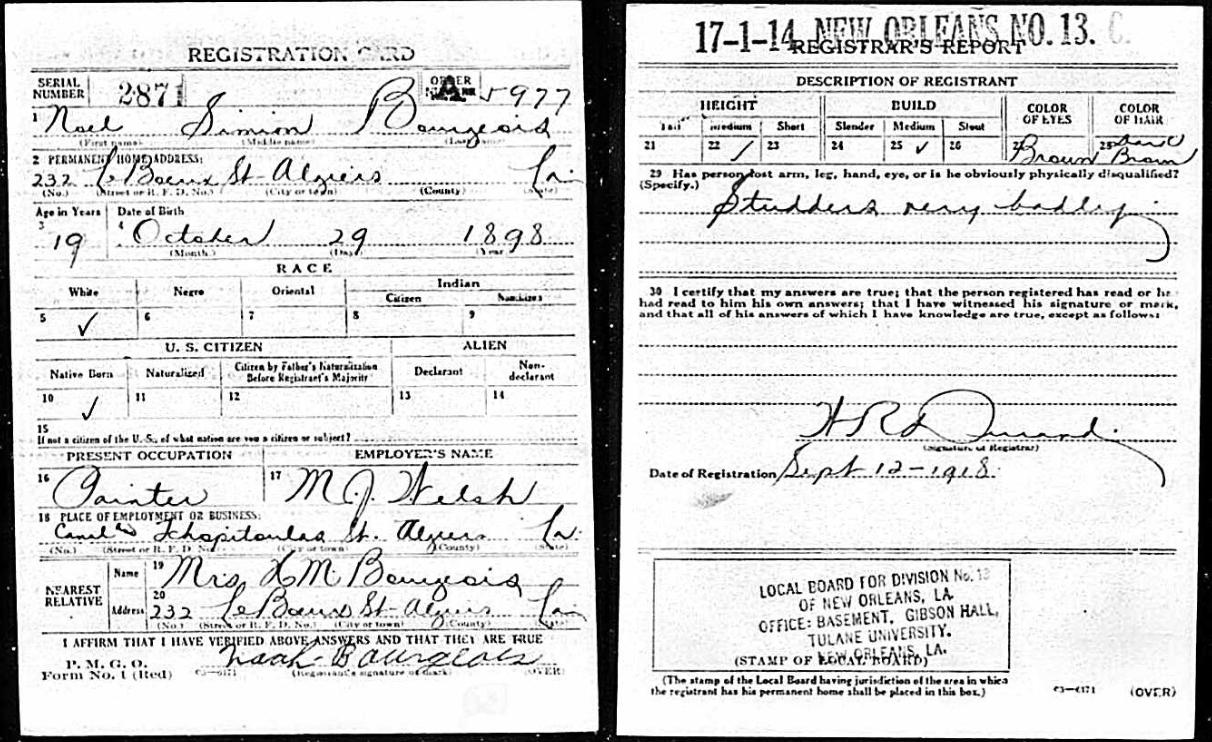 REGISTRATION CARD
SERIAL NUMBER 2871 ORDER NUMBER A 5977
1 Noel Simion Bourgeois
(First name) (Middle name) (Last name)
2 PERMANENT HOME ADDRESS:
232 LeBoeux St- Algiers La
(No.) (Street or R. F. D. No.) (City or town) (County) (State)
Age in Years Date of Birth
3 19 4 October 29 1898
(Month.) (Day.) (Year.)
RACE
White Negro Oriental Indian
Citizen Noncitizen
5 ✓ 6 7 8 9
U. S. CITIZEN ALIEN
Native Born Naturalized Citizen by Father's Naturalization Before Registrant's Majority Declarant Non-declarant
10 ✓ 11 12 13 14
15
If not a citizen of the U. S., of what nation are you a citizen or subject?
PRESENT OCCUPATION EMPLOYER'S NAME
16 Painter 17 M. J. Welsh
18 PLACE OF EMPLOYMENT OR BUSINESS:
Canal & Tchopitoulas St. Algiers La.
(No.) (Street or R. F. D. No.) (City or town) (County) (State)
NEAREST RELATIVE Name 19 Mrs H M Bourgeois
Address 20 232 LeBoeux St- Algiers La
(No.) (Street or R. F. D. No.) (City or town) (County) (State)
I AFFIRM THAT I HAVE VERIFIED ABOVE ANSWERS AND THAT THEY ARE TRUE
P. M. G. O.
Form No. 1 (Red) C3-6171 Noah Bourgeois
(Registrant's signature or mark) (OVER)
17-1-14 NEW ORLEANS NO. 13. C.
REGISTRAR'S REPORT
DESCRIPTION OF REGISTRANT
HEIGHT BUILD COLOR OF EYES COLOR OF HAIR
Tall Medium Short Slender Medium Stout
21 22 ✓ 23 24 25 ✓ 26 27 Brown 28 Brown
29 Has person lost arm, leg, hand, eye, or is he obviously physically disqualified?
(Specify.)
Studders very badley
30 I certify that my answers are true; that the person registered has read or has
had read to him his own answers; that I have witnessed his signature or mark,
and that all of his answers of which I have knowledge are true, except as follows:
(Signature of Registrar)
Date of Registration Sept 12-1918.
LOCAL BOARD FOR DIVISION No. 13
OF NEW ORLEANS, LA.
OFFICE: BASEMENT, GIBSON HALL,
TULANE UNIVERSITY.
NEW ORLEANS, LA.
(STAMP OF LOCAL BOARD)
(The stamp of the Local Board having jurisdiction of the area in which
the registrant has his permanent home shall be placed in this box.)
C3-6171 (OVER)